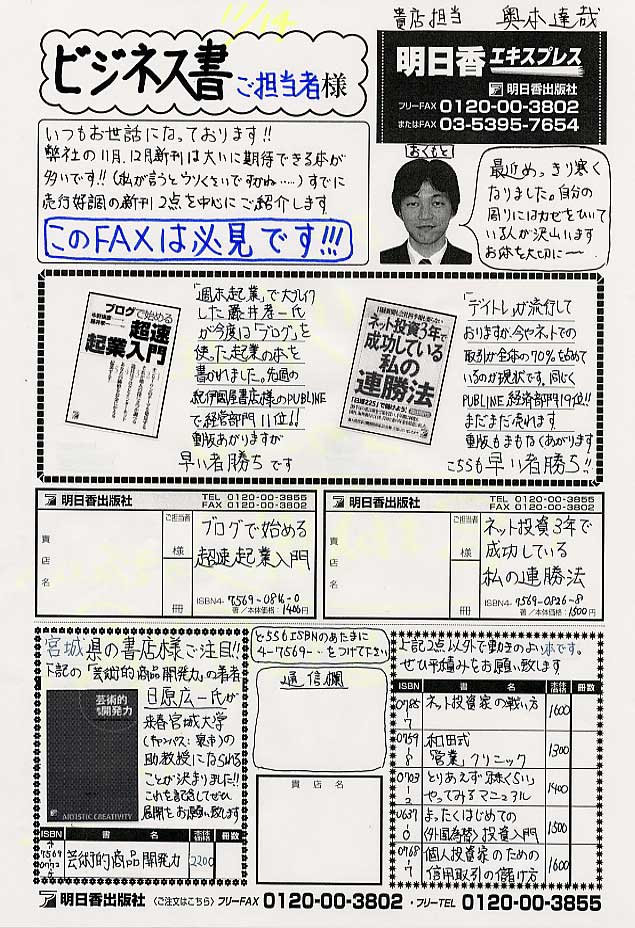 12/14
貴店担当 奥本達哉
ビジネス書ご担当者様
明日香エキスプレス
明日香出版社
フリーFAX 0120-00-3802
またはFAX 03-5395-7654
いつもお世話になっております!!
弊社の11月,12月新刊は大いに期待できる本が
多いです!!(私が言うとウソくさいですかね……)すでに
売行好調の新刊2点を中心にご紹介します
このFAXは必見です!!!
おくもと
最近めっきり寒く
なりました。自分の
周りにはカゼをひいて
いる人が沢山います
お体を大切に――
ブログで始める
超速
起業入門
「週末起業」で大ブレイク
した藤井孝一氏
が今度は「ブログ」を
使った起業の本を
書かれました。先週の
紀伊國屋書店様のPUBLINE
で経営部門11位!!
重版あがりますが
早い者勝ちです
ネット投資3年で
成功している
私の
連勝法
「日経225」で儲けよう!
「デイトレ」が流行して
おりますが今やネットでの
取引が全体の70%を占めて
いるのが現状です。同じく
PUBLINE経済部門19位!!
まだまだ売れます
重版もまもなくあがります
こちらも早い者勝ち!!
明日香出版社
TEL 0120-00-3855
FAX 0120-00-3802
貴店名
ご担当者
様
冊
ブログで始める
超速起業入門
ISBN4-7569-0816-0
著/本体価格:1400円
明日香出版社
TEL 0120-00-3855
FAX 0120-00-3802
貴店名
ご担当者
様
冊
ネット投資3年で
成功している
私の連勝法
ISBN4-7569-0826-8
著/本体価格:1500円
宮城県の書店様ご注目!!
下記の「芸術的商品開発力」の著者
日原広一氏が
来春宮城大学
の
助教授になられる
ことが決まりました!!
これを記念してぜひ
展開をお願い致します
芸術的
開発力
ARTISTIC CREATIVITY
ISBN 書名 本体価格 冊数
芸術的商品開発力 2200
ISBNのあたまに
4-7569-‥をつけて下さい
通信欄
貴店名
上記2点以外で動きのよい本です。
ぜひ平積みをお願い致します
ISBN 書名 本体価格 冊数
0785-7 ネット投資家の戦い方 1600
0759-8 和田式「営業」クリニック 1300
0703-2 とりあえず、2株くらい、やってみるマニュアル 1400
0637-0 まったくはじめての〈外国為替〉投資入門 1500
0768-7 個人投資家のための信用取引の儲け方 1600
明日香出版社 〈ご注文はこちら〉フリーFAX 0120-00-3802・フリーTEL 0120-00-3855